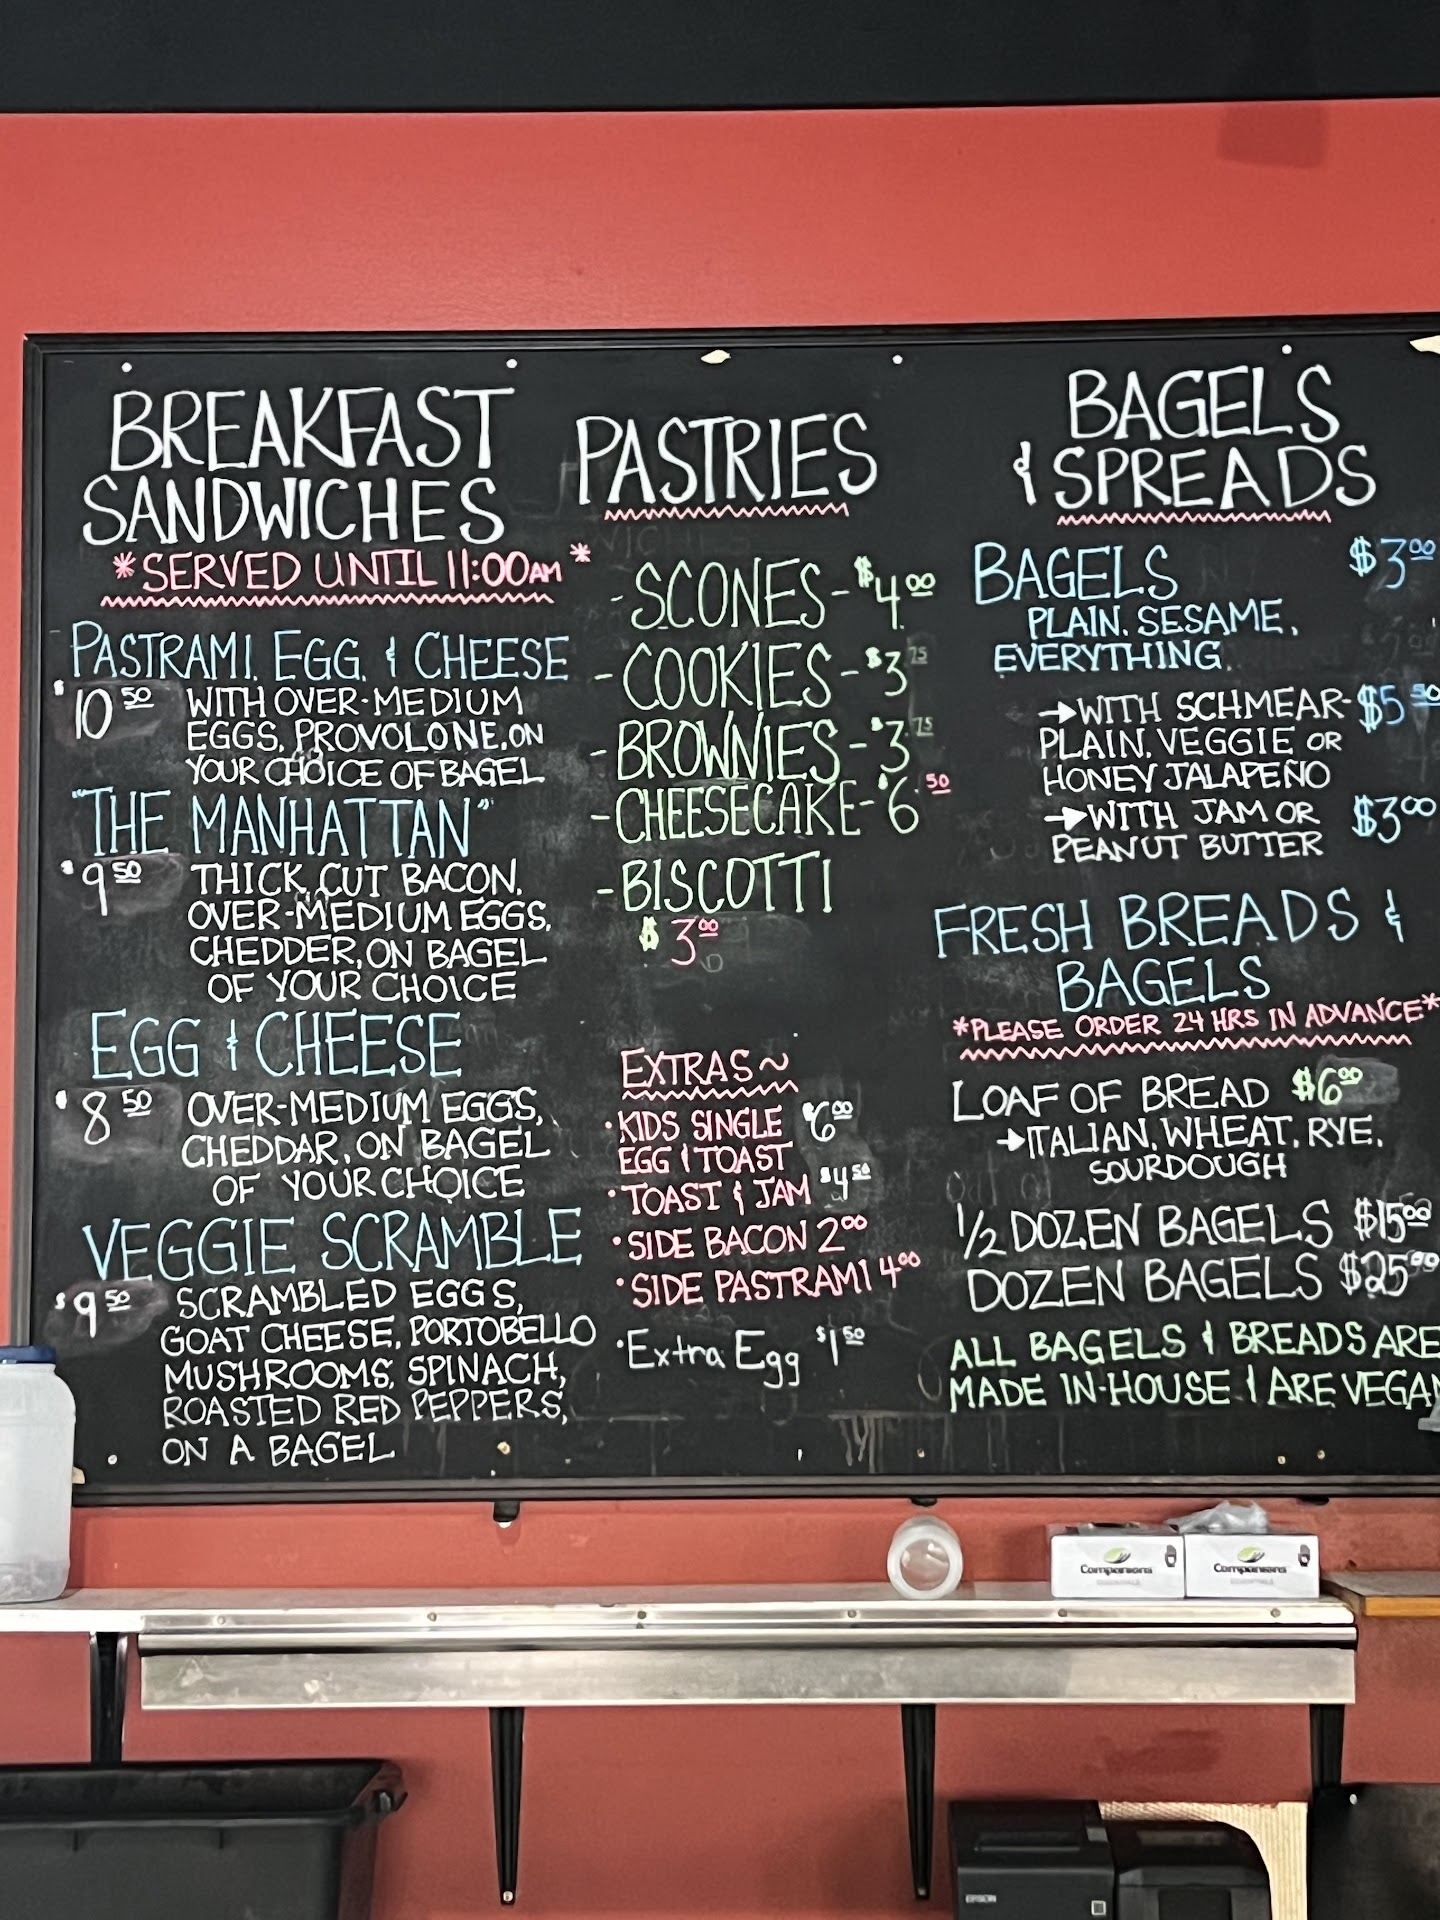 BREAKFAST
SANDWICHES
*SERVED UNTIL 11:00AM*
PASTRAMI, EGG, & CHEESE
$10 50 WITH OVER-MEDIUM
EGGS, PROVOLONE, ON
YOUR CHOICE OF BAGEL
"THE MANHATTAN"
$9 50 THICK CUT BACON,
OVER-MEDIUM EGGS,
CHEDDER, ON BAGEL
OF YOUR CHOICE
EGG & CHEESE
$8 50 OVER-MEDIUM EGGS,
CHEDDAR, ON BAGEL
OF YOUR CHOICE
VEGGIE SCRAMBLE
$9 50 SCRAMBLED EGGS,
GOAT CHEESE, PORTOBELLO
MUSHROOMS, SPINACH,
ROASTED RED PEPPERS,
ON A BAGEL
PASTRIES
- SCONES - $4.00
- COOKIES - $3.75
- BROWNIES - $3.75
- CHEESECAKE - $6.50
- BISCOTTI
$3 00
EXTRAS ~
• KIDS SINGLE $6 00
EGG & TOAST
• TOAST & JAM $4 50
• SIDE BACON 2 00
• SIDE PASTRAMI 4 00
• Extra Egg $1 50
BAGELS
& SPREADS
BAGELS $3 00
PLAIN, SESAME,
EVERYTHING
→ WITH SCHMEAR - $5 50
PLAIN, VEGGIE OR
HONEY JALAPEÑO
→ WITH JAM OR $3 00
PEANUT BUTTER
FRESH BREADS &
BAGELS
*PLEASE ORDER 24 HRS IN ADVANCE*
LOAF OF BREAD $6 00
→ ITALIAN, WHEAT, RYE,
SOURDOUGH
1/2 DOZEN BAGELS $15 00
DOZEN BAGELS $25 00
ALL BAGELS & BREADS ARE
MADE IN-HOUSE & ARE VEGAN
Companions Companions
ESSENTIALS ESSENTIALS
EPSON